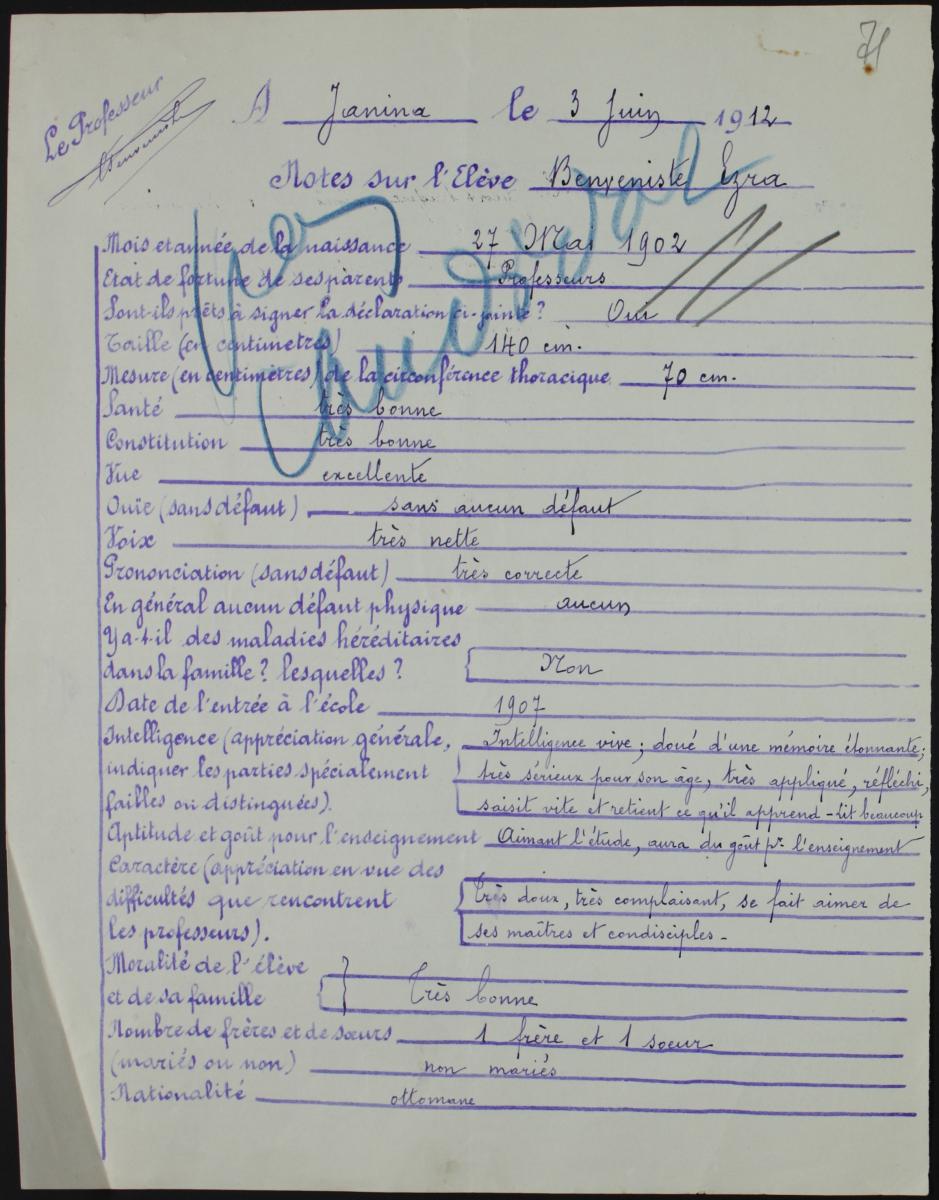 71
Le Professeur
Benveniste
A Janina le 3 Juin 1912
Notes sur l'Elève Benveniste Ezra
Mois et année de la naissance 27 Mai 1902
Etat de fortune de ses parents Professeurs
Sont-ils prêts à signer la déclaration ci-jointe? Oui
Taille (en centimètres) 140 cm.
Mesure (en centimètres) de la circonférence thoracique 70 cm.
Santé très bonne
Constitution très bonne
Vue excellente
Ouïe (sans défaut) sans aucun défaut
Voix très nette
Prononciation (sans défaut) très correcte
En général aucun défaut physique aucun
Y a-t-il des maladies héréditaires
dans la famille? lesquelles? Non
Date de l'entrée à l'école 1907
Intelligence (appréciation générale, Intelligence vive; doué d'une mémoire étonnante;
indiquer les parties spécialement très sérieux pour son âge, très appliqué, réfléchi,
faibles ou distinguées). saisit vite et retient ce qu'il apprend - Lit beaucoup
Aptitude et goût pour l'enseignement Aimant l'étude, aura du goût pr. l'enseignement
Caractère (appréciation en vue des
difficultés que rencontrent Très doux, très complaisant, se fait aimer de
les professeurs). ses maîtres et condisciples -
Moralité de l'élève
et de sa famille Très bonne
Nombre de frères et de sœurs 1 frère et 1 soeur
(mariés ou non) non mariés
Nationalité ottomane